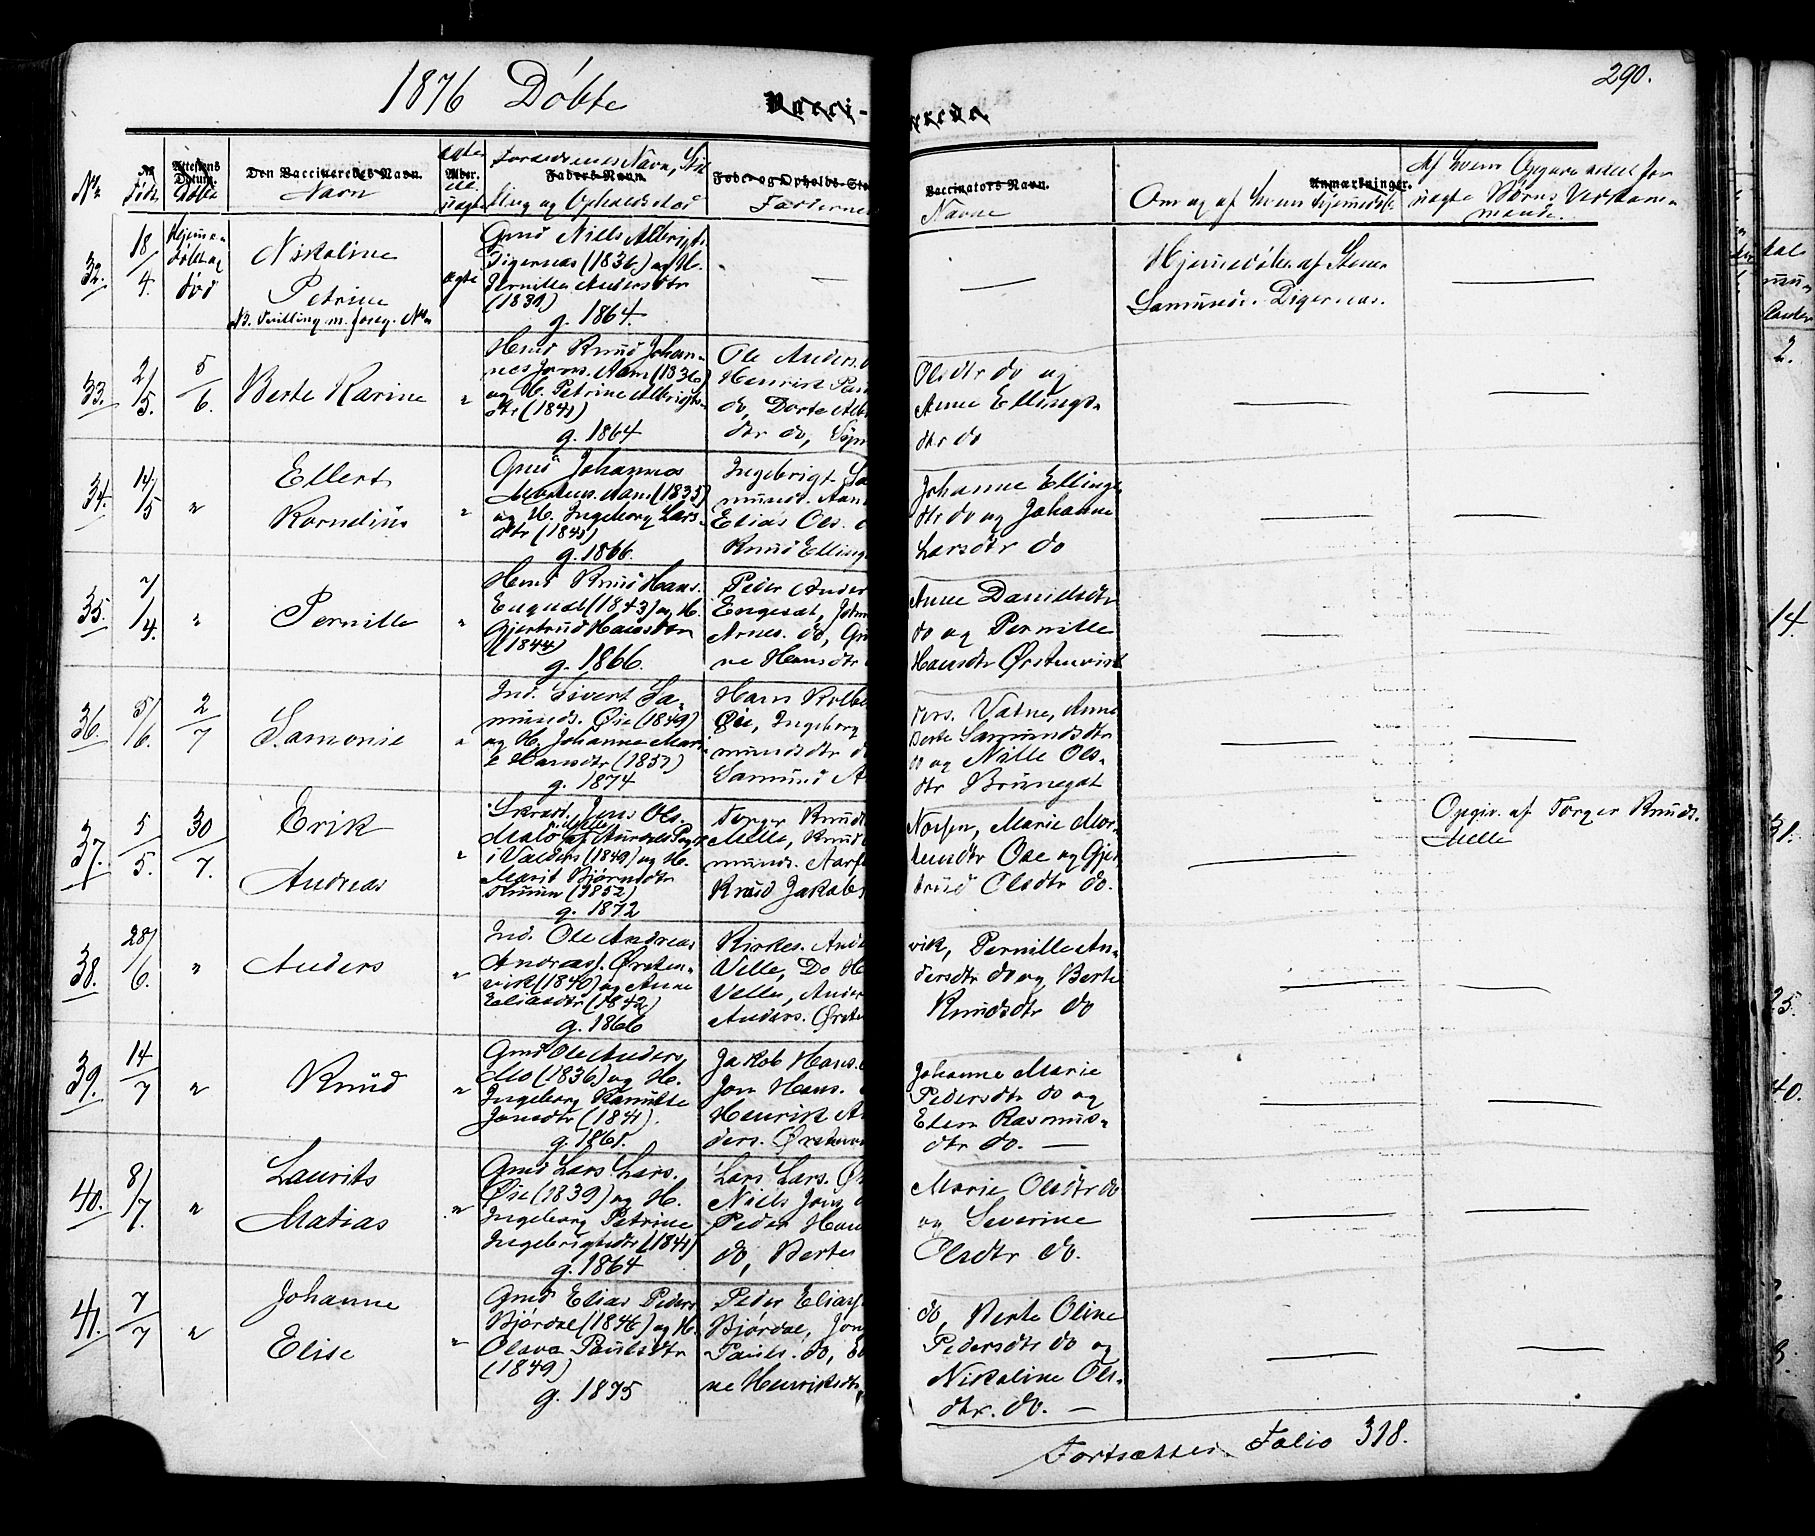 1876 Døbte
Vacci-
nerede.
290.
No.
Født
Attestens Datum.
Døbt
Den Vaccineredes Navn.
Navn
Alder.
ægte el. uægte
Forældrenes Navn, Stil-
Faders Navn.
ling og Opholdssted
Føde- og Opholds-Ste
Faddernes
Vaccinators Navn.
Navne
Anmærkninger.
Om og af hvem hjemmedøbt
Af hvem Opgave meddelt for
uægte Børns Vedkom-
mende.
32.
18/4.
Hjemme-
døbt og
død
Nikoline
Petrine
NB. Tvilling m. foreg. No
ægte
Gmd Niels Albrigts.
Digernæs (1836) og H.
Pernille Andersdtr
(1839)
g. 1864.
—
—
Hjemmedøbt af Stener
Samunds. Digernæs.
—
33.
2/5.
5/6.
Berte Karine
"
Hmd Knud Johan-
nes Jons. Aam (1836)
og H. Petrine Albrigts-
dtr (1841)
g. 1864
Ole Anders.
Henrik Pau
do, Dorte Alb
dtr do, Syn
Olsdtr do og
Anne Ellings-
dtr do
—
—
34.
14/5
"
Ellert
Kornelius
"
Gmd Johannes
Mortens. Aam (1835)
og H. Ingeborg Lars-
dtr (1840)
g. 1866.
Ingebrigt Sa
munds. Aam
Elias Ols.
Knud Elling
Johanne Ellings-
dtr do og Johanne
Larsdtr do
—
—
35.
7/4.
"
Pernille
"
Hmd Knud Hans.
Engesæt (1843) og H.
Gjertrud Hansdtr
(1844)
g. 1866.
Peder Ander
Engesæt, John
Arnes. do, Gu
ne Hansdtr
Anne Danielsdtr
do og Pernille
Hansdtr Ørstenvik
—
—
36.
5/6.
2/7
Samonie
"
Ind. Sivert Sa-
munds. Øie (1849)
og H. Johanne Mari-
e Hansdtr (1857)
g. 1874
Hans Kolbe
Øie, Ingeborg
mundsdtr d
Samund A
ders. Vatne, Anne
Berte Samundsdtr
do og Nille Ols-
dtr Brunegot
—
—
37.
5/5.
30/7.
Erik
Andreas
"
Skræd. Jens Ols.
Malo af Aurdals Pgj.
i Valders (1849) og H.
Marit Bjørnsdtr
(1852)
g. 1872
Torger Knud
Melle, Knud
munds. Aarf
Knud Jakobs
Nossen, Marie Mor-
tensdtr Ose og Gjer-
trud Olsdtr do.
—
Opgiv. af Torger Knuds.
Melle
38.
28/6.
"
Anders
"
Ind. Ole Andreas
Andreass. Ørsten-
vik (1840) og Anne
Eliasdtr (1842)
g. 1866
Kirkes. And
Velle, Do H
Velle, Ander
Anders. Ørste
vik, Pernille An-
dersdtr do og Berte
Knudsdtr do
—
—
39.
14/7
"
Knud
"
Gmd Ole Anders.
Mo (1836) og H.
Ingeborg Kanutte
Jonsdtr (1841).
g. 1865.
Jakob Hans.
Jon Hans.
Henrik A
ders. Ørstenv
Johanne Marie
Pedersdtr do og
Elen Rasmus-
dtr do. —
—
—
40.
8/7.
"
Laurits
Matias
"
Gmd Lars Lars.
Øie (1839) og H.
Ingeborg Petrine
Ingebrigtsdtr (1841)
g. 1864
Lars Lars. Ø
Niels Jons.
Peder Han
do, Berte
Marie Olsdtr do
og Severine
Olsdtr do.
—
—
41.
7/7
"
Johanne
Elise
"
Gmd Elias Peders.
Bjørdal (1846) og H.
Olava Paulsdtr
(1849)
g. 1875
Peder Eliass
Bjørdal, Jon
Pauls. do, El
ne Henriksdtr
do, Berte Oline
Pedersdtr do og
Nikoline Ols-
dtr. do. —
—
—
Fortsættes Folio 318.
2.
14.
31.
25.
40.
3.